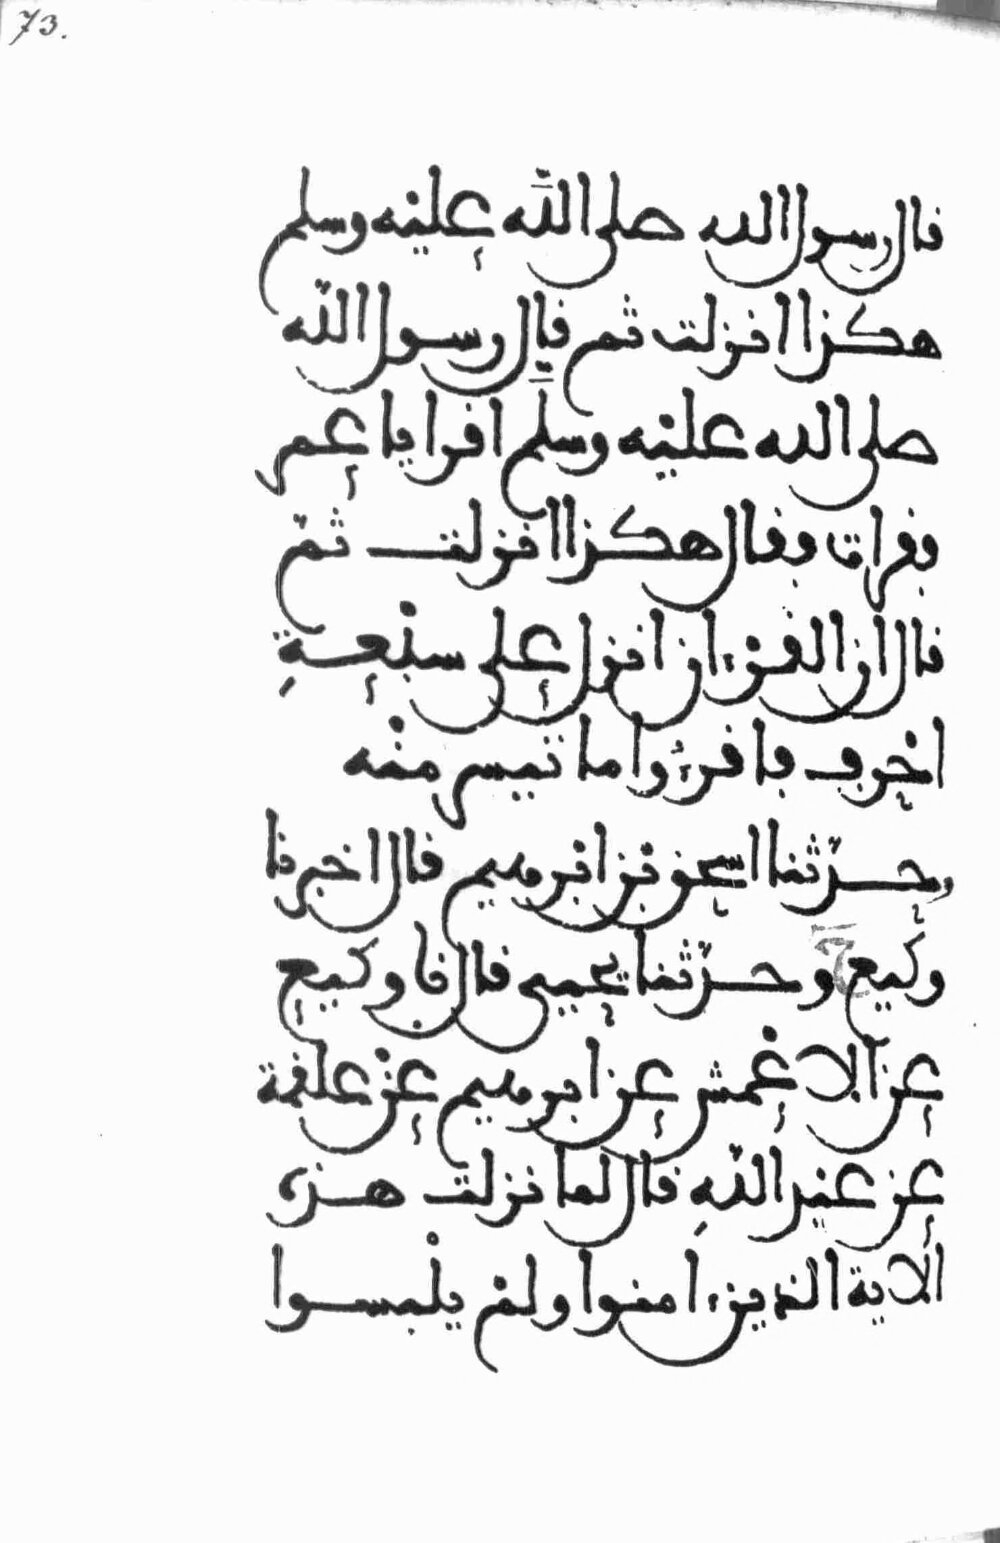 73.
قال رسول الله صلى الله عليه وسلم
هكذا انزلت ثم قال رسول الله
صلى الله عليه وسلم اقرا يا عمر
فقرات فقال هكذا انزلت ثم
قال ان القرءان انزل على سبعة
احرف فاقرءوا ما تيسر منه
وحدثنا اسحق بن ابرهيم قال اخبرنا
وكيع ح وحدثنا يحيى قال نا وكيع
عن الاعمش عن ابرهيم عن علقمة
عن عبد الله قال لما نزلت هذه
الاية الذين ءامنوا ولم يلبسوا